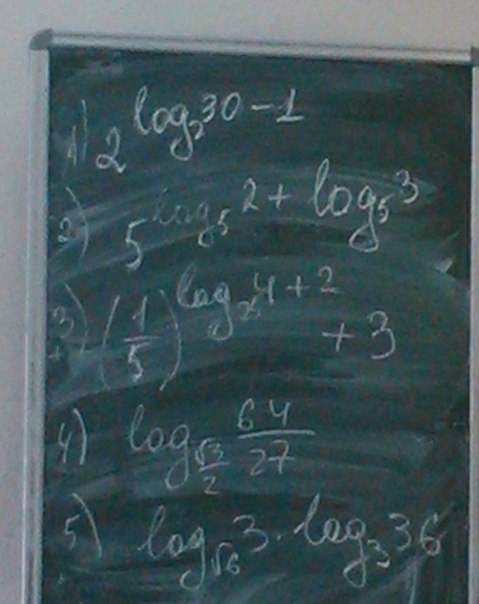 1) 2^{log_2 30 - 1}
2) 5^{log_5 2 + log_5 3}
3) (1/5)^{log_{25} 4 + 2} + 3
4) log_{√3/2} 64/27
5) log_{√6} 3 · log_3 36